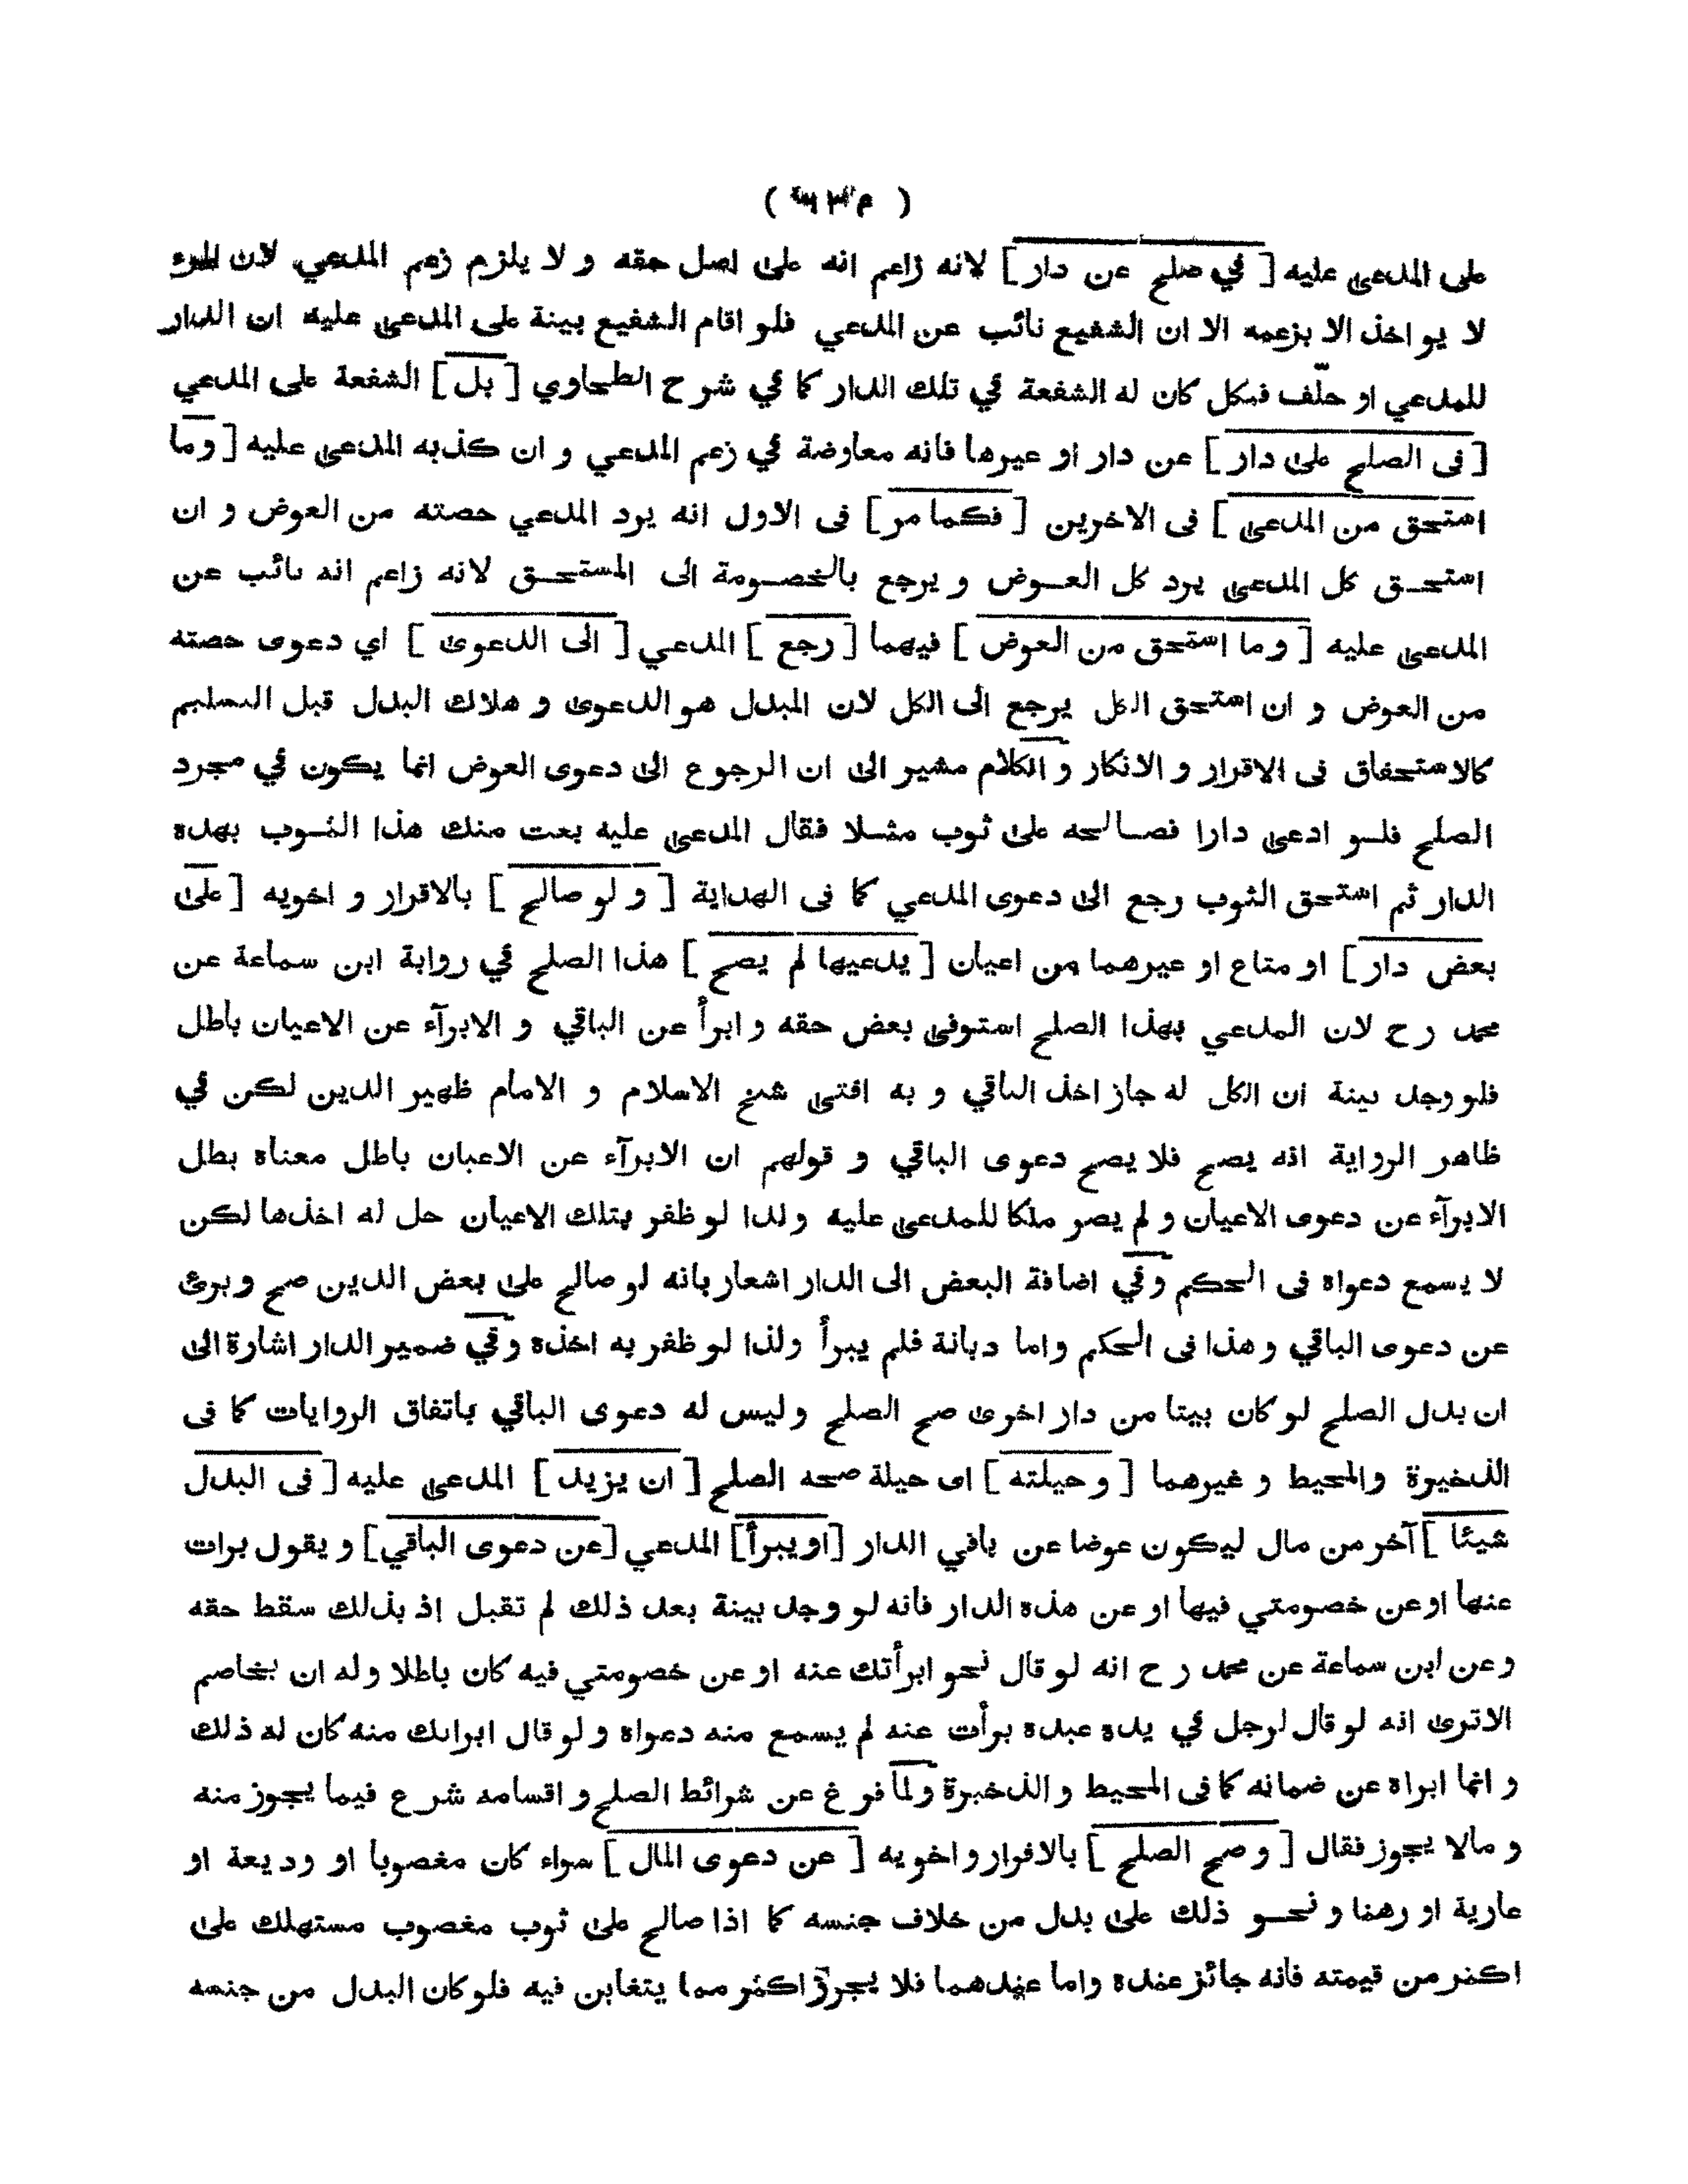 على المدعى عليه [ في صلح عن دار ] لانه زاعم انه على اصل حقه و لا يلزم زعم المدعي لان المرء
لا يواخذ الا بزعمه الا ان الشفيع نائب عن المدعي فلو اقام الشفيع بينة على المدعى عليه ان الدار
للمدعي او حلّف فنكل كان له الشفعة في تلك الدار كما في شرح الطحاوي [ بل ] الشفعة على المدعي
[ فى الصلح على دار ] عن دار او غيرها فانه معاوضة في زعم المدعي و ان كذبه المدعى عليه [ وما
استحق من المدعى ] فى الاخرين [ فكما مر ] فى الاول انه يرد المدعي حصته من العوض و ان
استحق كل المدعى يرد كل العوض و يرجع بالخصومة الى المستحق لانه زاعم انه نائب عن
المدعى عليه [ وما استحق من العوض ] فيهما [ رجع ] المدعي [ الى الدعوى ] اي دعوى حصته
من العوض و ان استحق الكل يرجع الى الكل لان المبدل هو الدعوى و هلاك البدل قبل التسليم
كالاستحقاق فى الاقرار و الانكار و الكلام مشير الى ان الرجوع الى دعوى العوض انما يكون في مجرد
الصلح فلو ادعى دارا فصالحه على ثوب مثلا فقال المدعى عليه بعت منك هذا الثوب بهذه
الدار ثم استحق الثوب رجع الى دعوى المدعي كما فى الهداية [ و لو صالح ] بالاقرار و اخويه [ على
بعض دار ] او متاع او غيرهما من اعيان [ يدعيها لم يصح ] هذا الصلح في رواية ابن سماعة عن
محمد رح لان المدعي بهذا الصلح استوفى بعض حقه و ابرأ عن الباقي و الابرآء عن الاعيان باطل
فلو وجد بينة ان الكل له جاز اخذ الباقي و به افتى شيخ الاسلام و الامام ظهير الدين لكن في
ظاهر الرواية انه يصح فلا يصح دعوى الباقي و قولهم ان الابرآء عن الاعيان باطل معناه بطل
الابرآء عن دعوى الاعيان و لم يصر ملكا للمدعى عليه ولذا لو ظفر بتلك الاعيان حل له اخذها لكن
لا يسمع دعواه فى الحكم وفي اضافة البعض الى الدار اشعار بانه لو صالح على بعض الدين صح وبرئ
عن دعوى الباقي و هذا فى الحكم واما ديانة فلم يبرأ ولذا لو ظفر به اخذه وفي ضمير الدار اشارة الى
ان بدل الصلح لو كان بيتا من دار اخرى صح الصلح وليس له دعوى الباقي باتفاق الروايات كما فى
الذخيرة والمحيط و غيرهما [ و حيلته ] اى حيلة صحه الصلح [ ان يزيد ] المدعى عليه [ فى البدل
شيئا ] آخر من مال ليكون عوضا عن باقي الدار [او يبرأ] المدعي [عن دعوى الباقي] و يقول برات
عنها او عن خصومتي فيها او عن هذه الدار فانه لو وجد بينة بعد ذلك لم تقبل اذ بذلك سقط حقه
وعن ابن سماعة عن محمد رح انه لو قال نحو ابرأتك عنه او عن خصومتي فيه كان باطلا وله ان يخاصم
الاترى انه لو قال لرجل في يده عبده برأت عنه لم يسمع منه دعواه و لو قال ابراتك منه كان له ذلك
و انما ابراه عن ضمانه كما فى المحيط و الذخيرة ولما فرغ عن شرائط الصلح و اقسامه شرع فيما يجوز منه
و مالا يجوز فقال [ و صح الصلح ] بالاقرار و اخويه [ عن دعوى المال ] سواء كان مغصوبا او وديعة او
عارية او رهنا و نحو ذلك على بدل من خلاف جنسه كما اذا صالح على ثوب مغصوب مستهلك على
اكثر من قيمته فانه جائز عنده واما عندهما فلا يجوز اكثر مما يتغابن فيه فلو كان البدل من جنسه